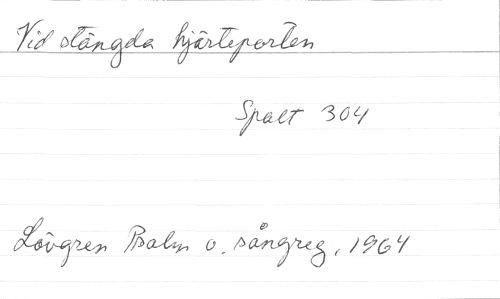 Vid stängda hjärteporten
Spalt 304
Lövgren Psalm o. sångreg, 1964